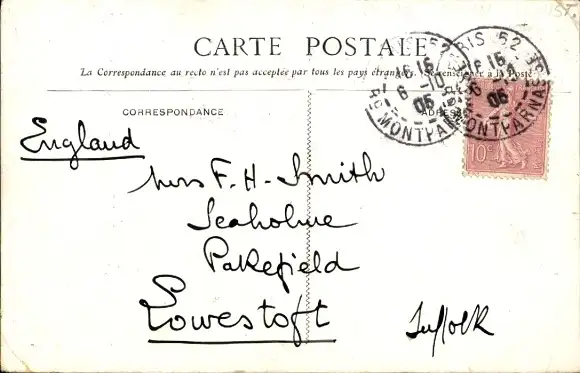 CARTE POSTALE
La Correspondance au recto n'est pas acceptée par tous les pays étrangers. Se renseigner à la Poste
CORRESPONDANCE
ADRESSE
England
Miss F. H. Smith
Seaholme
Pakefield
Lowestoft
Suffolk
16 15
6 -10
05
MONTPARNASSE
PARIS 52
10c